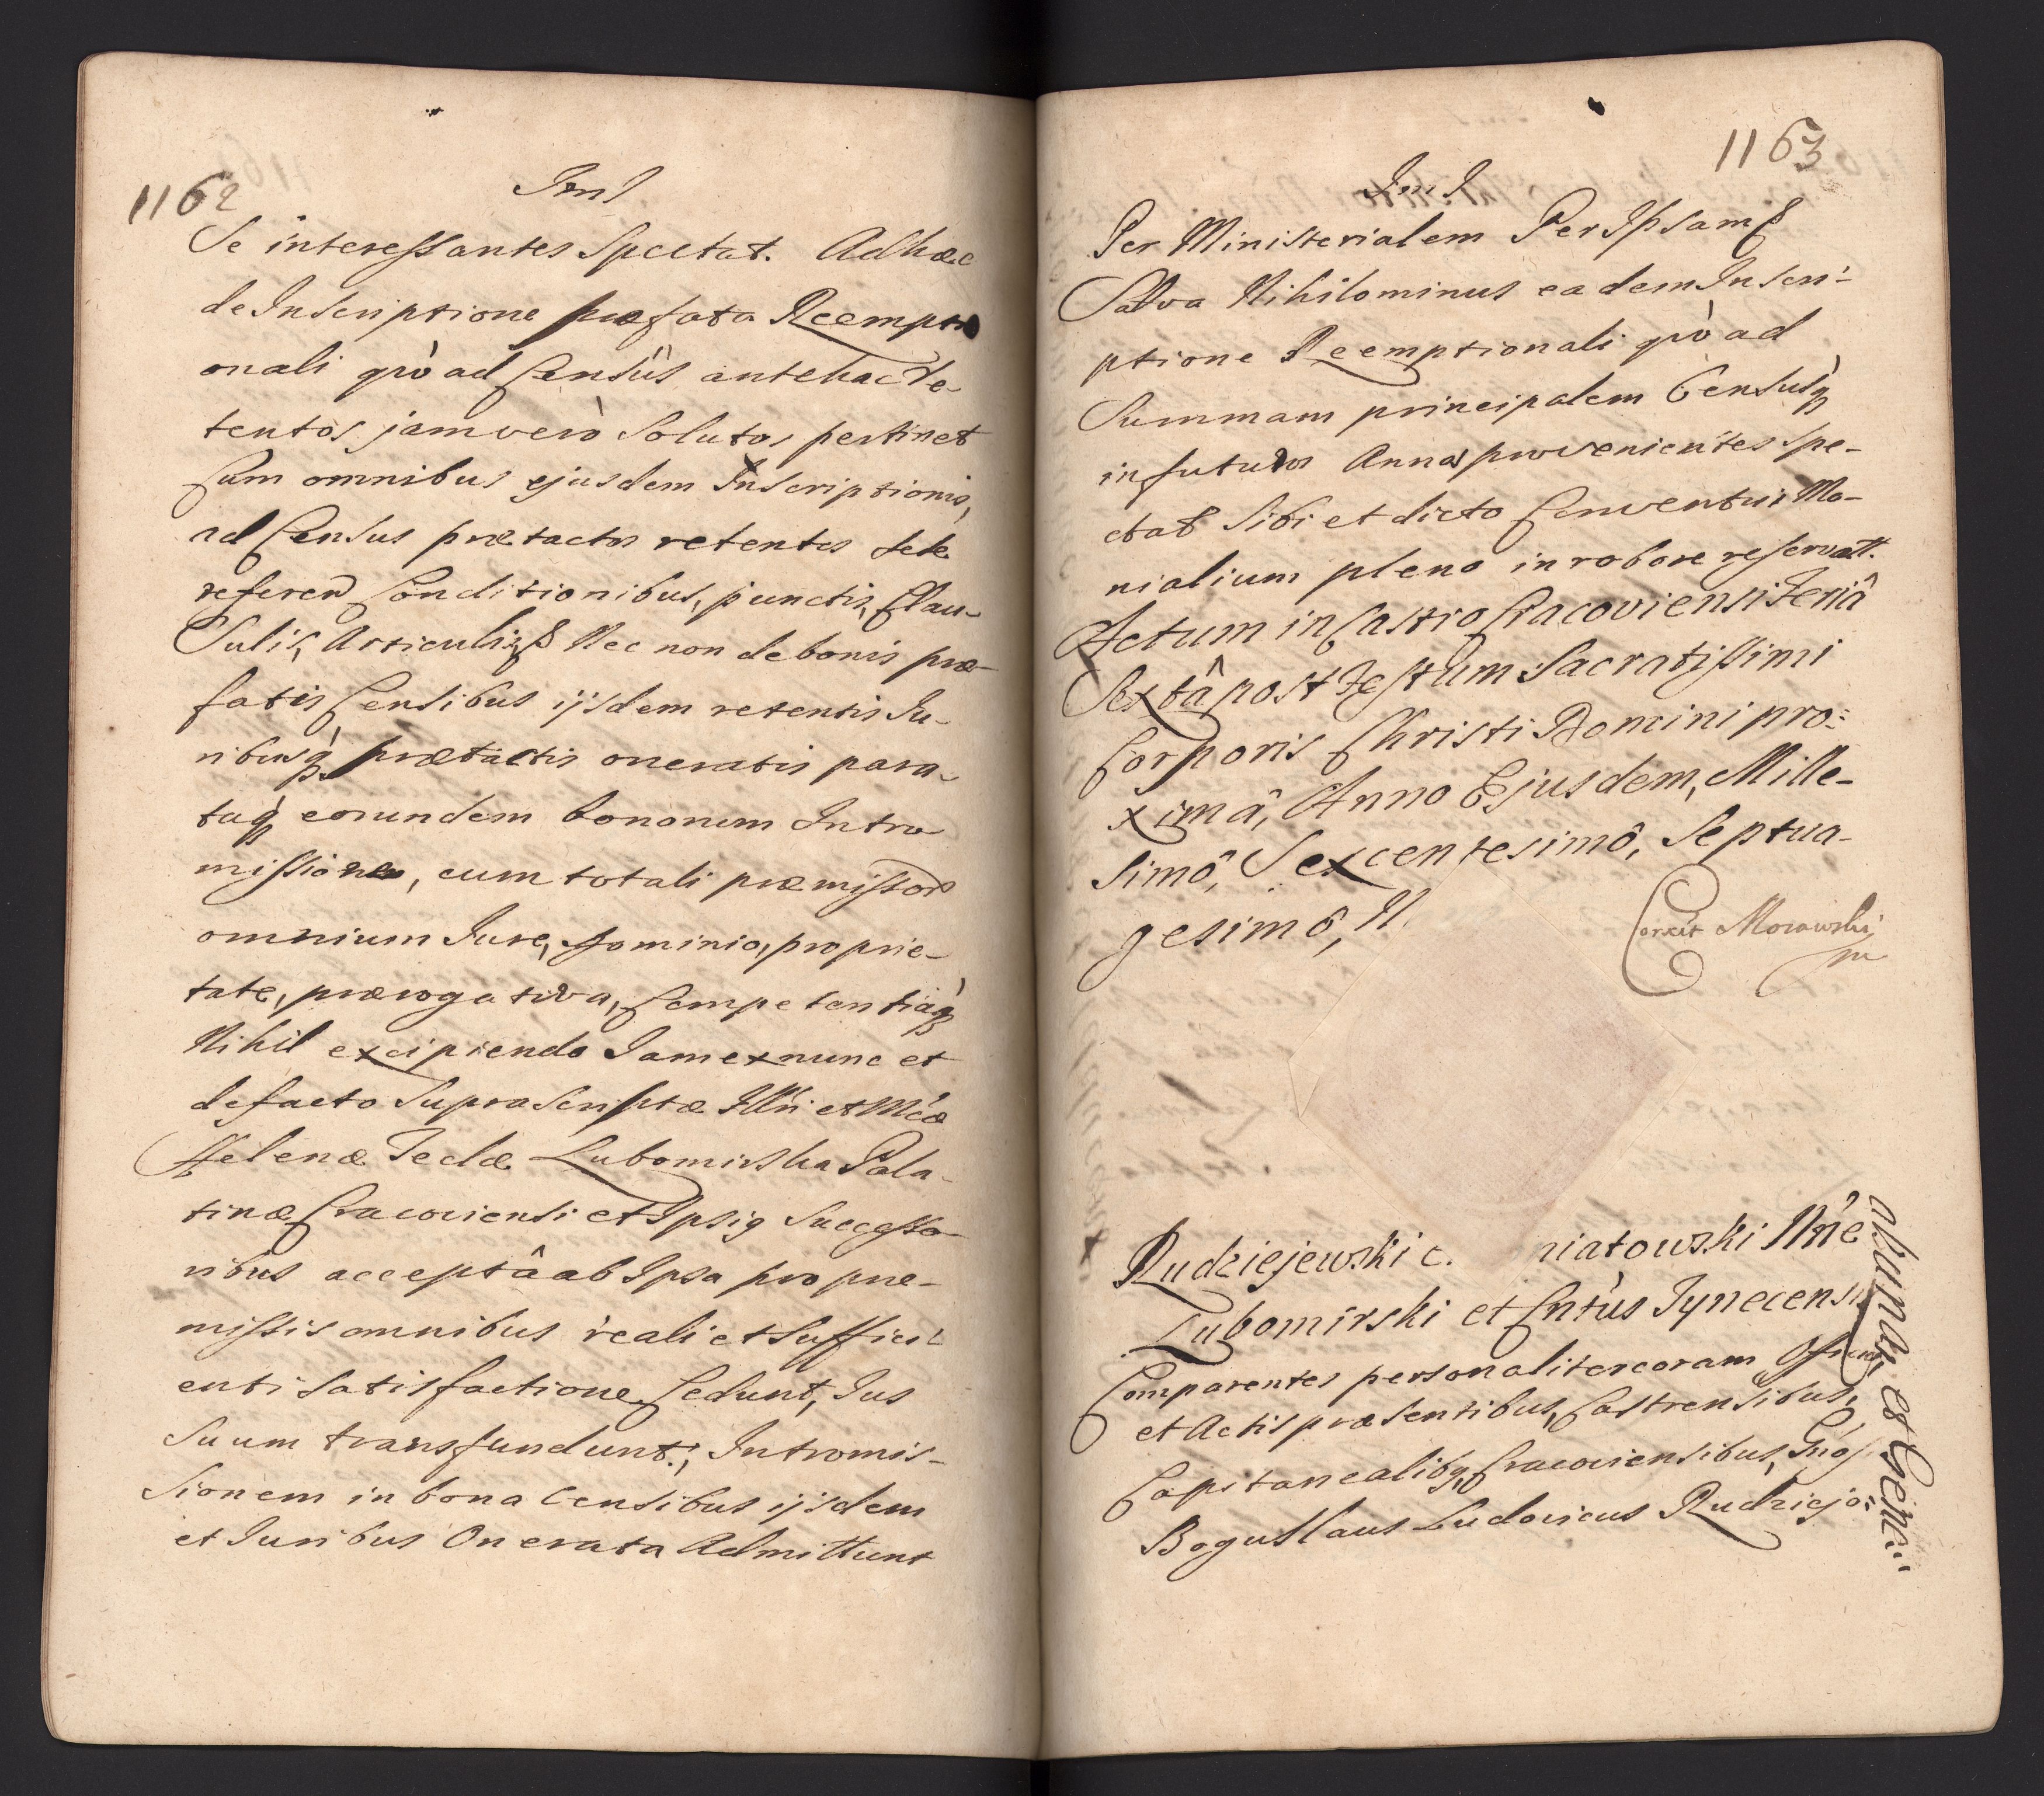 1162
Se interessantes Spectat. Adhæc
de Inscriptione præfata Reempti
onali quò ad Censûs antehac re-
tentos jam verò Solutos pertinet
Cum omnibus ejusdem Inscriptionis,
ad Census prætactos retentos sese
referen Conditionibus, punctis, Clau-
Sulis, Articulis Nec non de bonis præ-
fatis Censibus ijsdem retentis Ju-
ribusq prætactis oneratis para-
taq eorundem bonorum Intro
missione, cum totali præmissor
omnium Jure, Dominio, proprie-
tate, prærogativa, Competentiaq
Nihil excipiendo Jam ex nunc et
defacto Suprascriptæ Illri et Mcæ
Helenæ Teclæ Lubomirska Pala-
tinæ Cracoviensi et Ipsig Successo-
ribus acceptâ ab Ipsa pro præ-
missis omnibus reali et Suffici-
enti Satisfactione Cedunt, Jus
Suum transfundunt, Intromis-
Sionem in bona Censibus ijsdem
et Juribus Onerata Admittunt
1163
Per Ministerialem Per Ipsam
Salva Nihilominus eadem Inscri-
ptione Reemptionali quò ad
Summam principalem Censusq
in futuros Annos provenientes spe-
ctat Sibi et dicto Conventui Mo-
nialium pleno in robore reservatt.
Actum in Castro Cracoviensi Feriâ
Sextâ post Festum Sacratissimi
Corporis Christi Domini pro=
ximâ, Anno Ejusdem, Mille-
simô, Sexcentesimô, Septua-
gesimô, N.
Corrxit Morawski
m
Rudziejewski c. niatowski Ilrie
Lubomirski et Cntus Tynecensis
Comparentes personaliter coram Officio
et Actis præsentibus, Castrensibus,
Capitanealibq, Cracoviensibus, Gnos
Boguslaus Ludovicus Rudziejo=